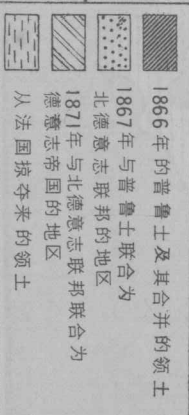 1866年的普鲁士及其合并的领土
1867年与普鲁士联合为
北德意志联邦的地区
1871年与北德意志联邦联合为
德意志帝国的地区
从法国掠夺来的领土